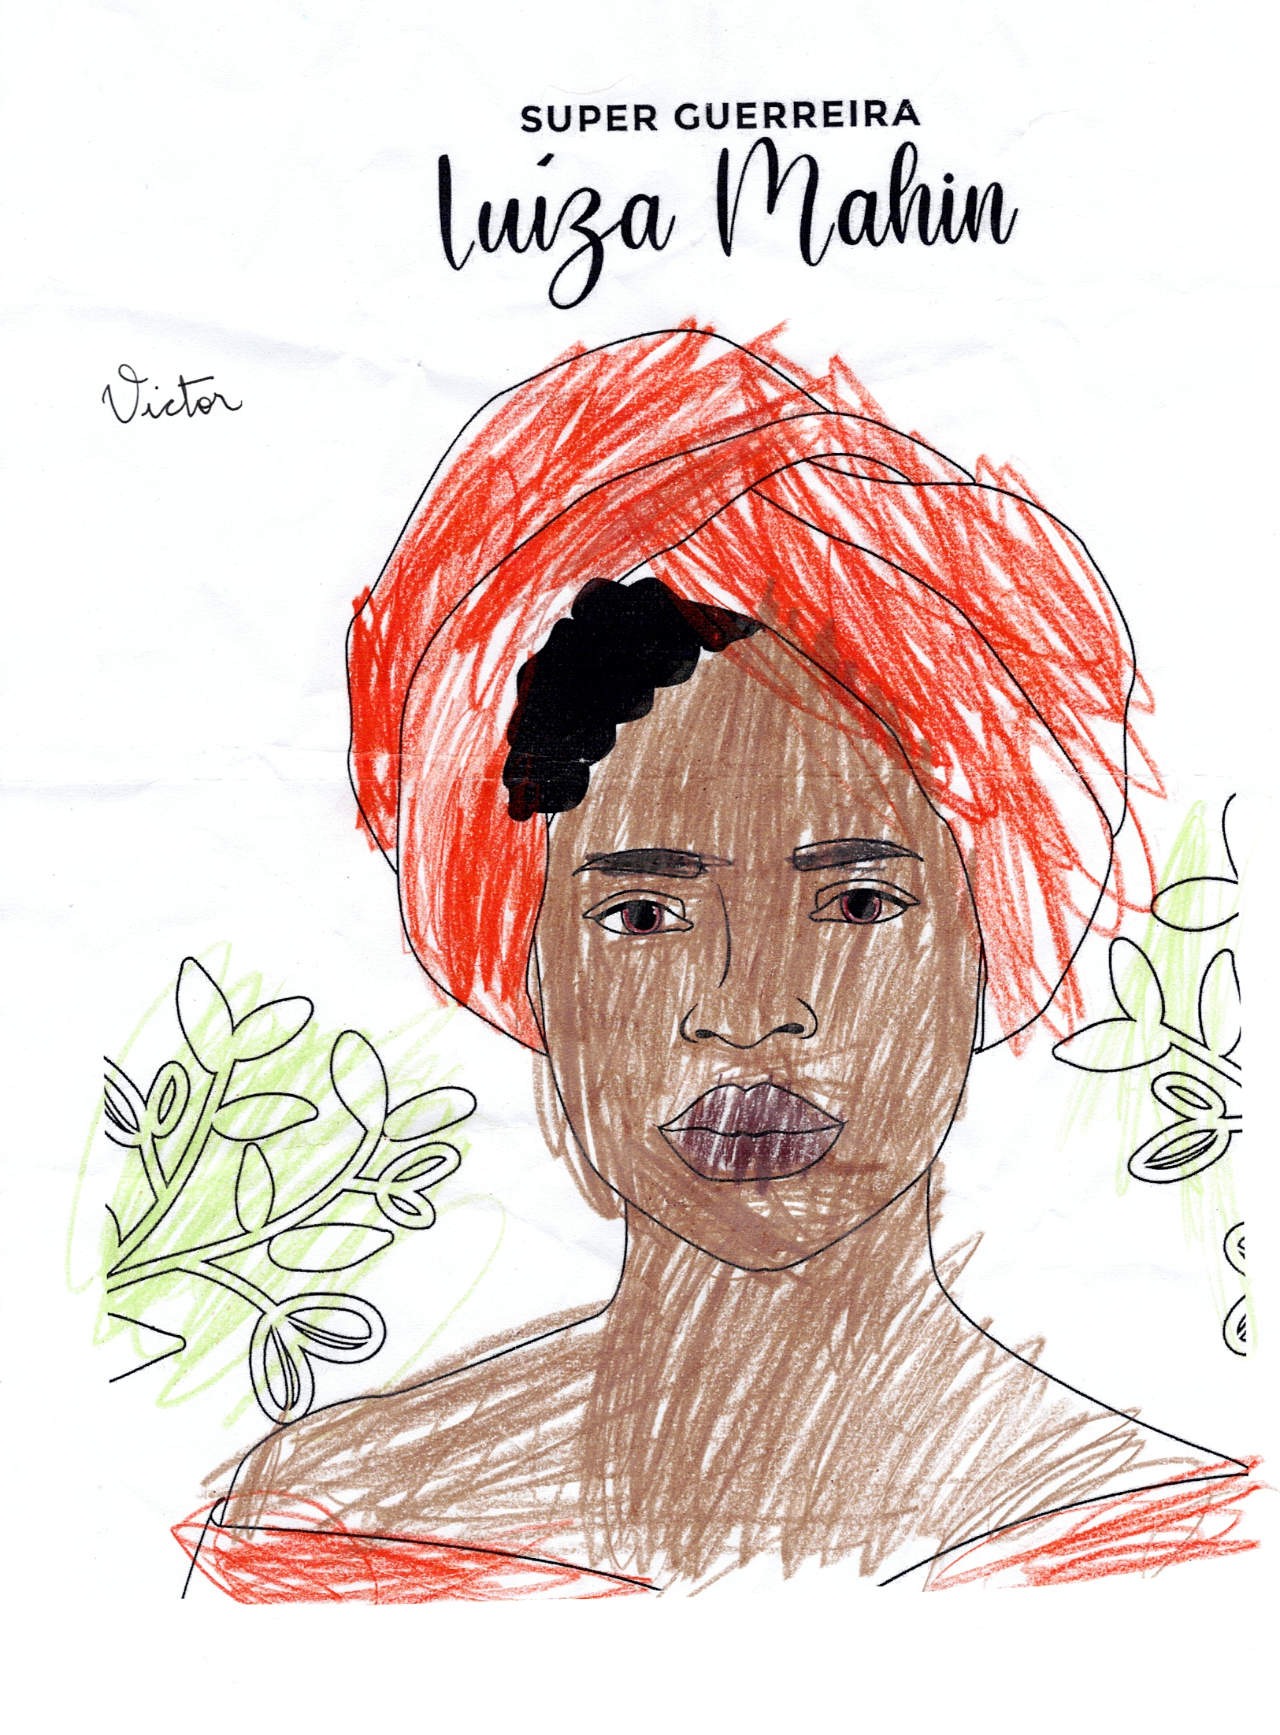 SUPER GUERREIRA
Luíza Mahin
Victor